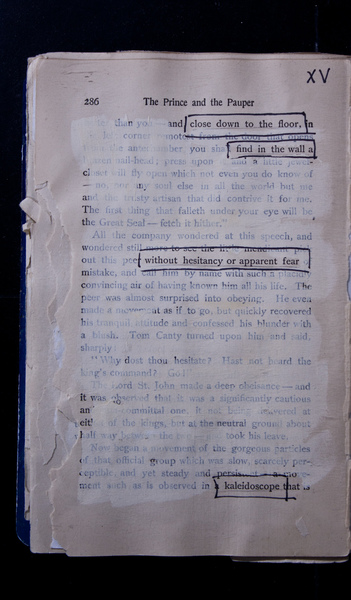 XV
286 The Prince and the Pauper
than you — and close down to the floor, in
corner remotest from the door that opens
from the ante you sha find in the wall a
nail-head; press upon and a little jewel-
closet will fly open which not even you do know of
— no, nor any soul else in all the world but me
and the trusty artisan that did contrive it for me.
The first thing that falleth under your eye will be
the Great Seal — fetch it hither."
All the company wondered at this speech, and
wondered still more to see the little
out this peer without hesitancy or apparent fear
mistake, and call him by name with such a placidly
convincing air of having known him all his life. The
peer was almost surprised into obeying. He even
made a movement as if to go, but quickly recovered
his tranquil attitude and confessed his blunder with
a blush. Tom Canty turned upon him and said,
sharply
"Why dost thou hesitate? Hast not heard the
king's command? Go!"
The Lord St. John made a deep obeisance — and
it was observed that it was a significantly cautious
an committal one, it not being delivered at
eit of the kings, but at the neutral ground about
half way took his leave.
Now began a movement of the gorgeous particles
of that official group which was slow, scarcely per-
ceptible, and yet steady and persis a move-
ment such as is observed in a kaleidoscope that is